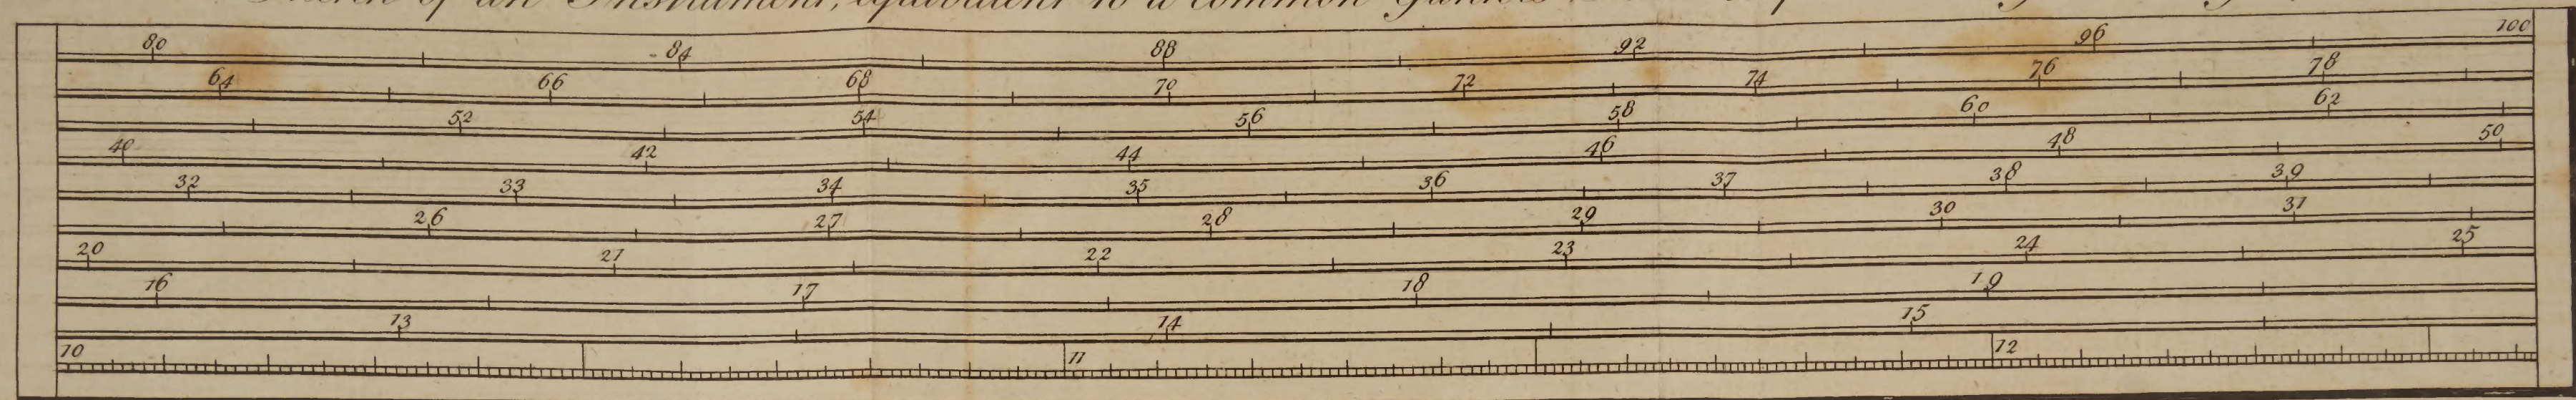 Sketch of an Instrument, equivalent to a common Gunter's
80 84 88 92 96 100
64 66 68 70 72 74 76 78
52 54 56 58 60 62
40 42 44 46 48 50
32 33 34 35 36 37 38 39
26 27 28 29 30 31
20 21 22 23 24 25
16 17 18 19
13 14 15
10 11 12